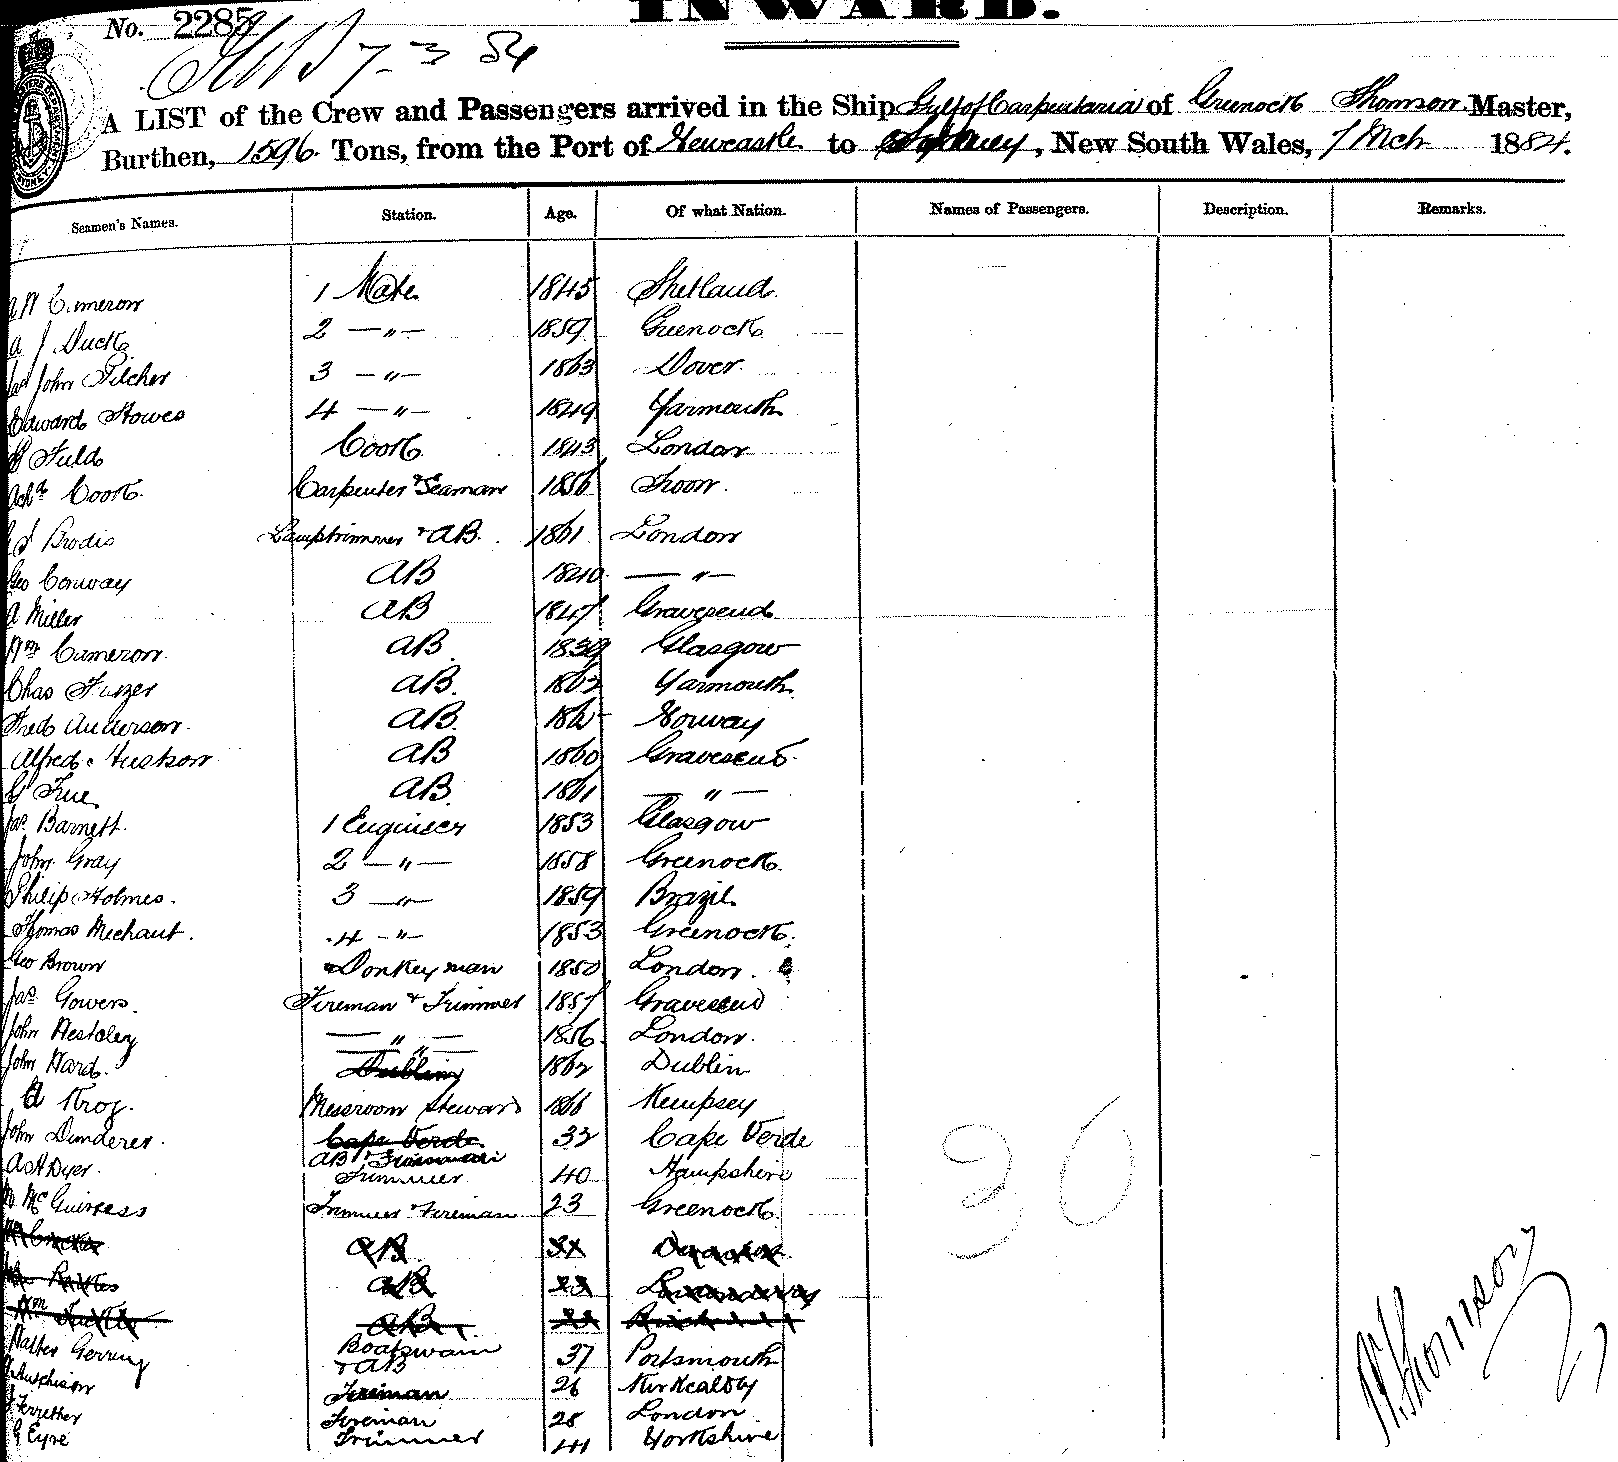 INWARD.
No. 2285
7-3 84
A LIST of the Crew and Passengers arrived in the Ship Gulf of Carpentaria of Greenock Thomson Master,
Burthen, 1596 Tons, from the Port of Newcastle to Sydney, New South Wales, 7 Mch 1884.
Seamen's Names. Station. Age. Of what Nation. Names of Passengers. Description. Remarks.
Cameron 1 Mate 1845 Shetland
A J Duck 2 —"— 1859 Greenock
Jas John Pilcher 3 —"— 1863 Dover
Edward Stowes 4 —"— 1849 Yarmouth
Field Cook 1843 London
Archd Cook Carpenter & Seaman 1856 Troon
Brodie Lamptrimmer & AB 1861 London
Geo Conway AB 1840 —"—
A Miller AB 1847 Gravesend
Wm Cameron AB 1839 Glasgow
Chas Furzer AB. 1862 Yarmouth
Fred Anderson AB. Norway
Alfred AB 1860 Gravesend
G True AB 1861 —"—
Jas Barnett 1 Engineer 1853 Glasgow
John Gray 2 —"— 1858 Greenock
Philip Holmes 3 —"— 1859 Brazil
Thomas Mechaut 4 -"- 1853 Greenock
Geo Brown Donkeyman 1850 London
Jas Gowers Fireman & Trimmer 1857 Gravesend
John Westeley —"— 1856 London
John Ward —"— Dublin 1862 Dublin
Krog Messroom Steward 1866 Kempsey
John Dunderer Cape Verde 32 Cape Verde
A H Dyer AB & Trimmer 40 Hampshire
McGuiness Trimmer & Fireman 23 Greenock
AB
AB
AB
Walter Gerring Boatswain & AB 37 Portsmouth
Hutchison Fireman 26 Kirkcaldy
Ferrether Fireman 28 London
G Eyre Trimmer 41 Yorkshire
30
W Thomson